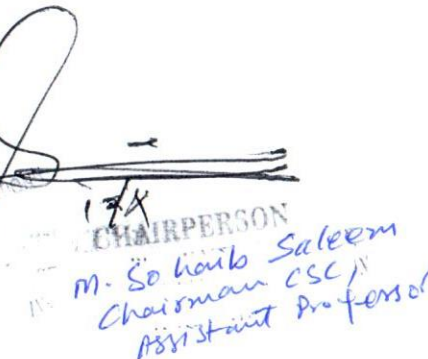 CHAIRPERSON
M. Sohaib Saleem
Chairman CSC,
Assistant Professor